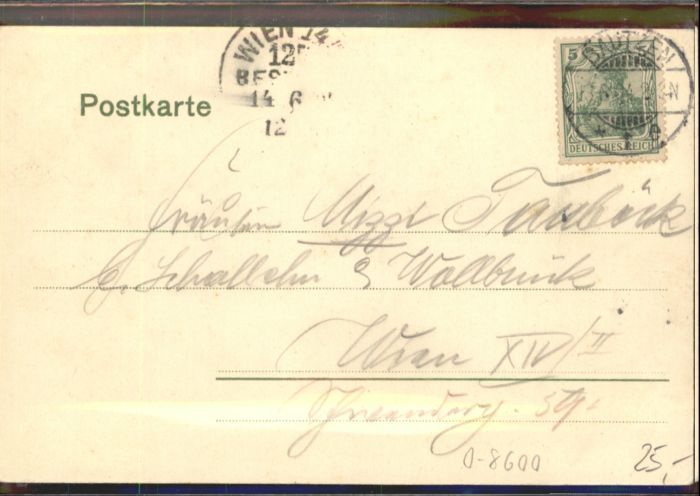 WIEN 14
12
BES
14 6
12
5
BAUTZEN
DEUTSCHES REICH
Postkarte
Fräulein Mizzi Tauböck
Wollbrück
Wien XIV/II
59
0-8600
25,-